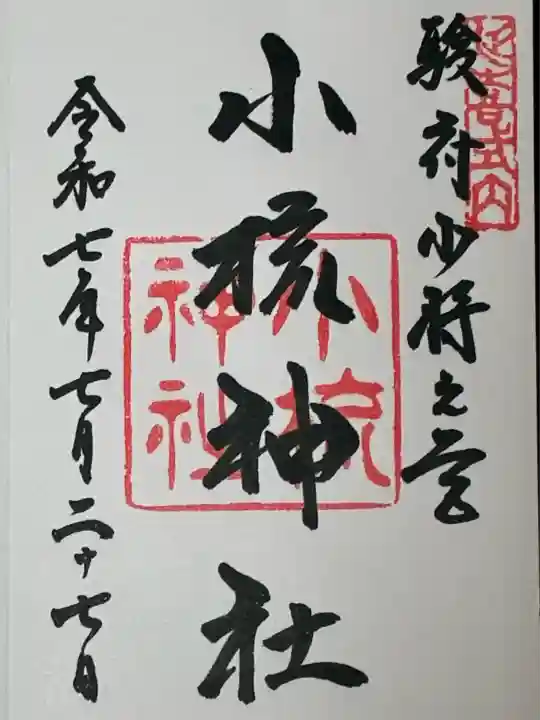 延喜式内
駿府少将之宮
小梳神社
小梳
神社
令和七年七月二十七日